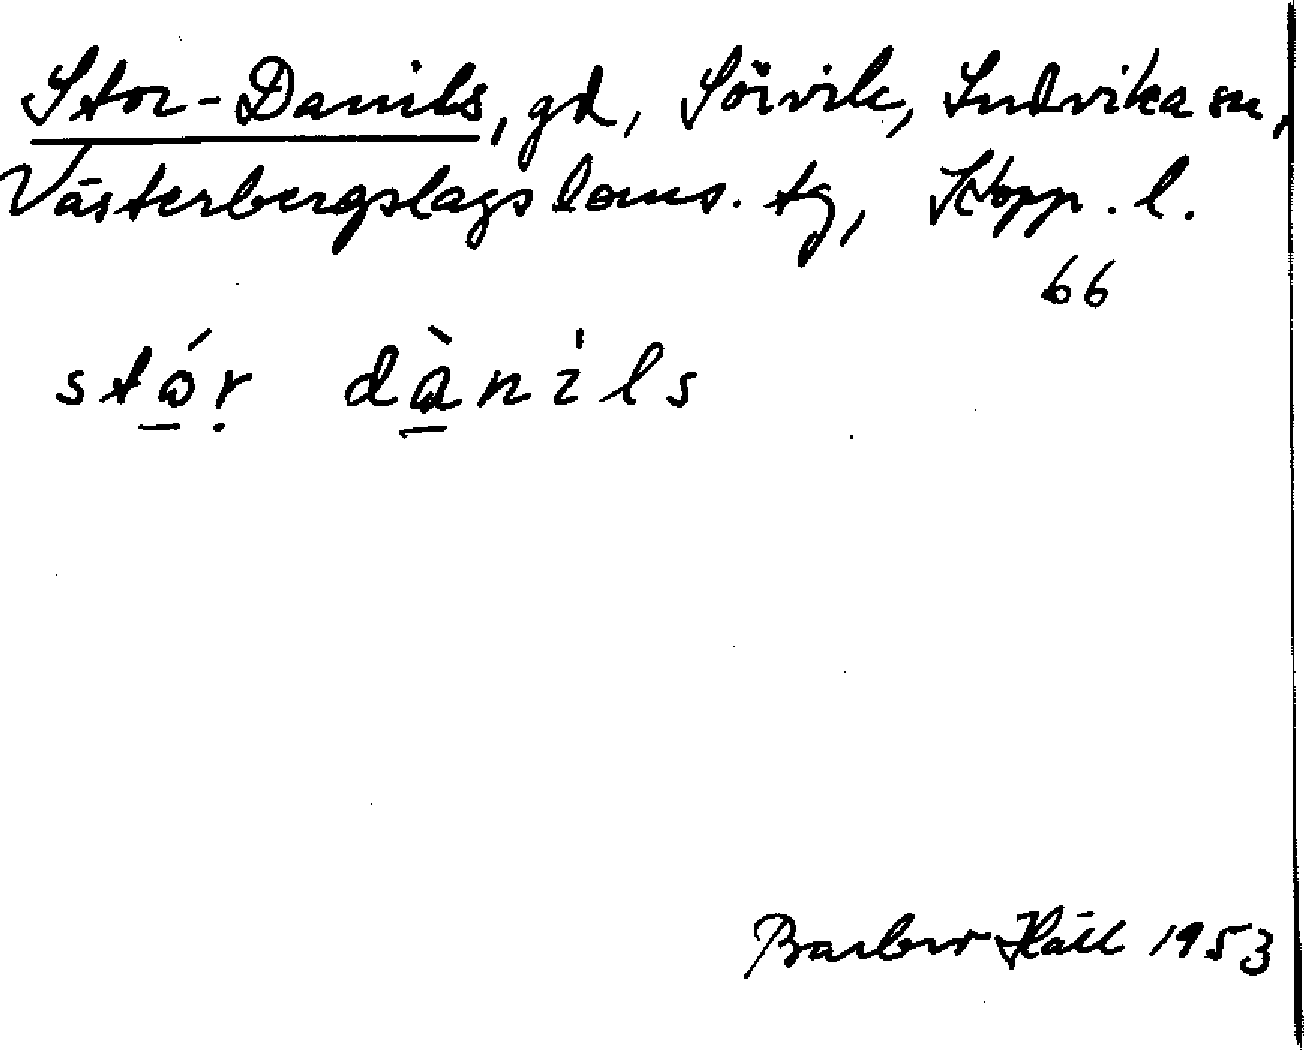 Stor-Danils, gd, Sörvik, Ludvika sn,
Västerbergslags doms. tg, Kopp. l.
66
stó̱ṛ dà̱nils
Barbro Häll 1953